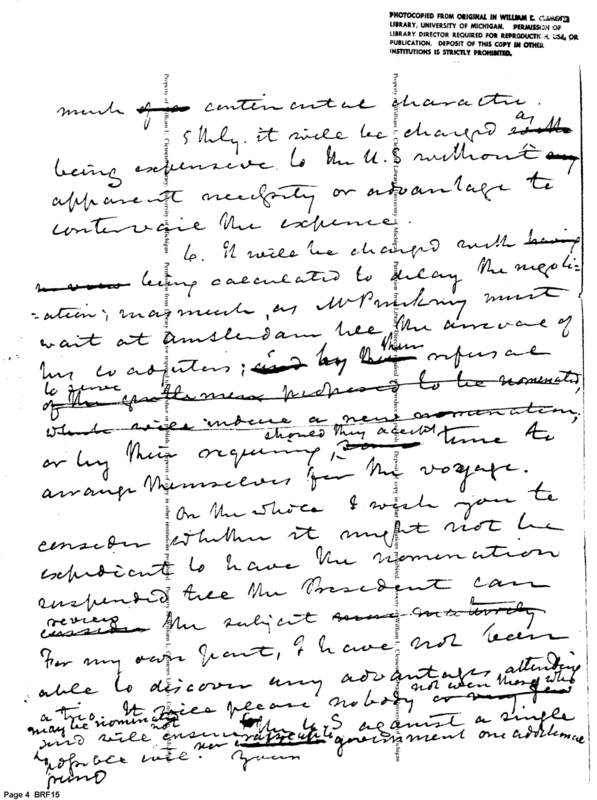 PHOTOCOPIED FROM ORIGINAL IN WILLIAM L. CLEMENTS
LIBRARY, UNIVERSITY OF MICHIGAN. PERMISSION OF
LIBRARY DIRECTOR REQUIRED FOR REPRODUCTION, USE, OR
PUBLICATION. DEPOSIT OF THIS COPY IN OTHER
INSTITUTIONS IS STRICTLY PROHIBITED.
much of a continental character.
5thly. it will be charged as
being expensive to the U.S without any
apparent necessity or advantage to
contervale the expence.
6. It will be charged with having
being calculated to delay the negoti-
-ation; inasmuch, as Mr Pinckney must
wait at Amsterdam till the arrival of
his coadjutors; and by their refusal
to serve
of the gentlemen proposed to be nominated,
which will induce a new nomination,
or by their requiring, should they accept time to
arrange themselves for the voyage.
On the whole I wish you to
consider whether it might not be
expedient to have the nomination
suspended till the President can
review
consider the subject more maturely
For my own part, I have not been
able to discover any advantages attending
a trio. It will please nobody not even those who
may be nominated
and will ensure to the U.S against a single
nor government one additional
friend
Yours
Page 4 BRF15